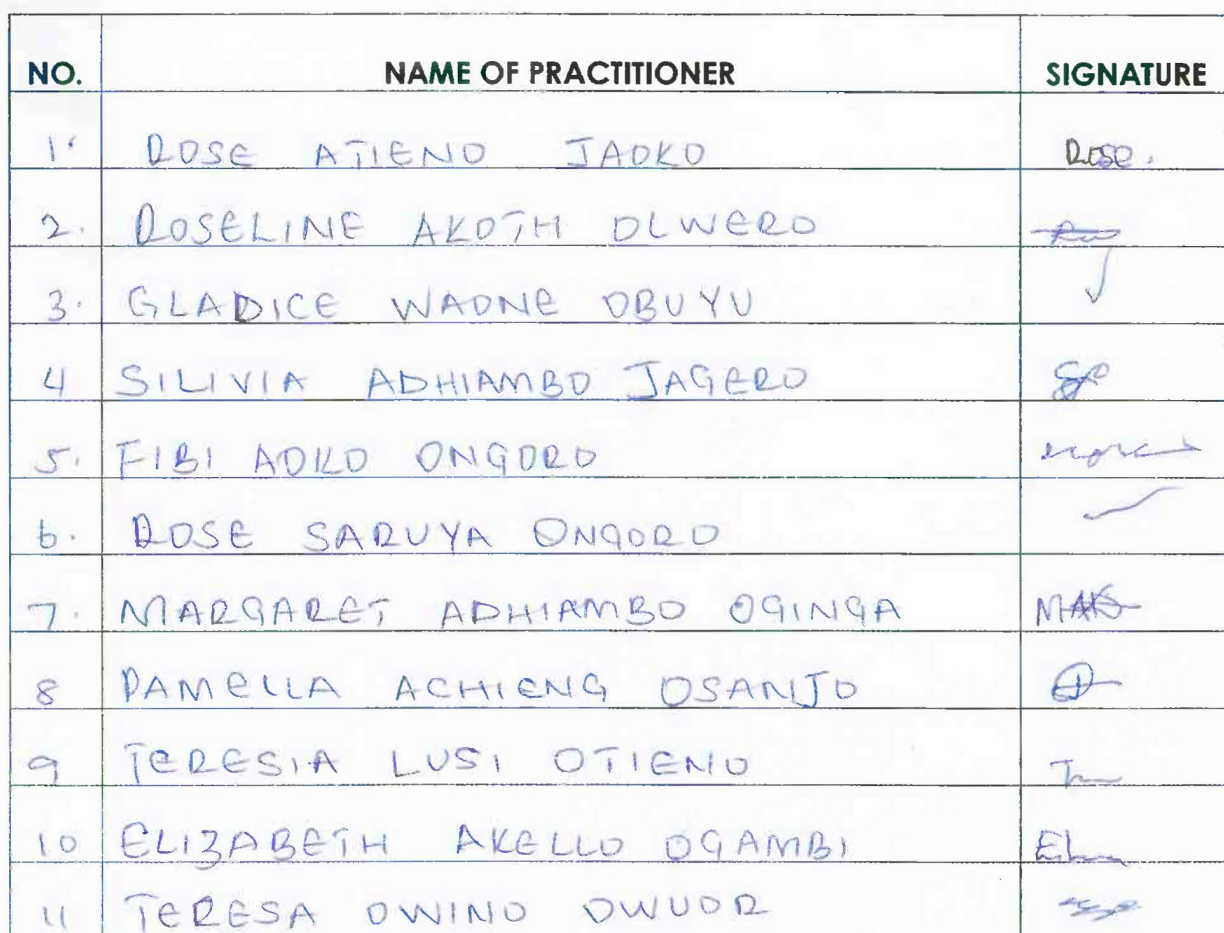 NO. NAME OF PRACTITIONER SIGNATURE
1. ROSE ATIENO JAOKO Rose.
2. ROSELINE AKOTH OLWERO
3. GLADICE WAONE OBUYU
4 SILIVIA ADHIAMBO JAGERO
5. FIBI AOKO ONGORO
6. ROSE SARUYA ONGORO
7. MARGARET ADHIAMBO OGINGA
8 PAMELLA ACHIENG OSANJO
9 TERESIA LUSI OTIENO
10 ELIZABETH AKELLO OGAMBI
11 TERESA OWINO OWUOR